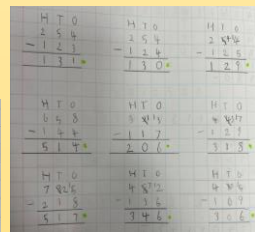 H T O
2 5 4
- 1 2 3
1 3 1
H T O
2 5 4
- 1 2 4
1 3 0
H T O
2
- 1 2 5
1 2 9
H T O
6 5 8
- 1 4 4
5 1 4
H T O
3
- 1 1 7
2 0 6
H T O
4
- 1 2 9
3 1 8
H T O
7
- 2 1 8
5 1 7
H T O
4
- 1 3 6
3 4 6
H T O
4
- 1 0 9
3 0 6